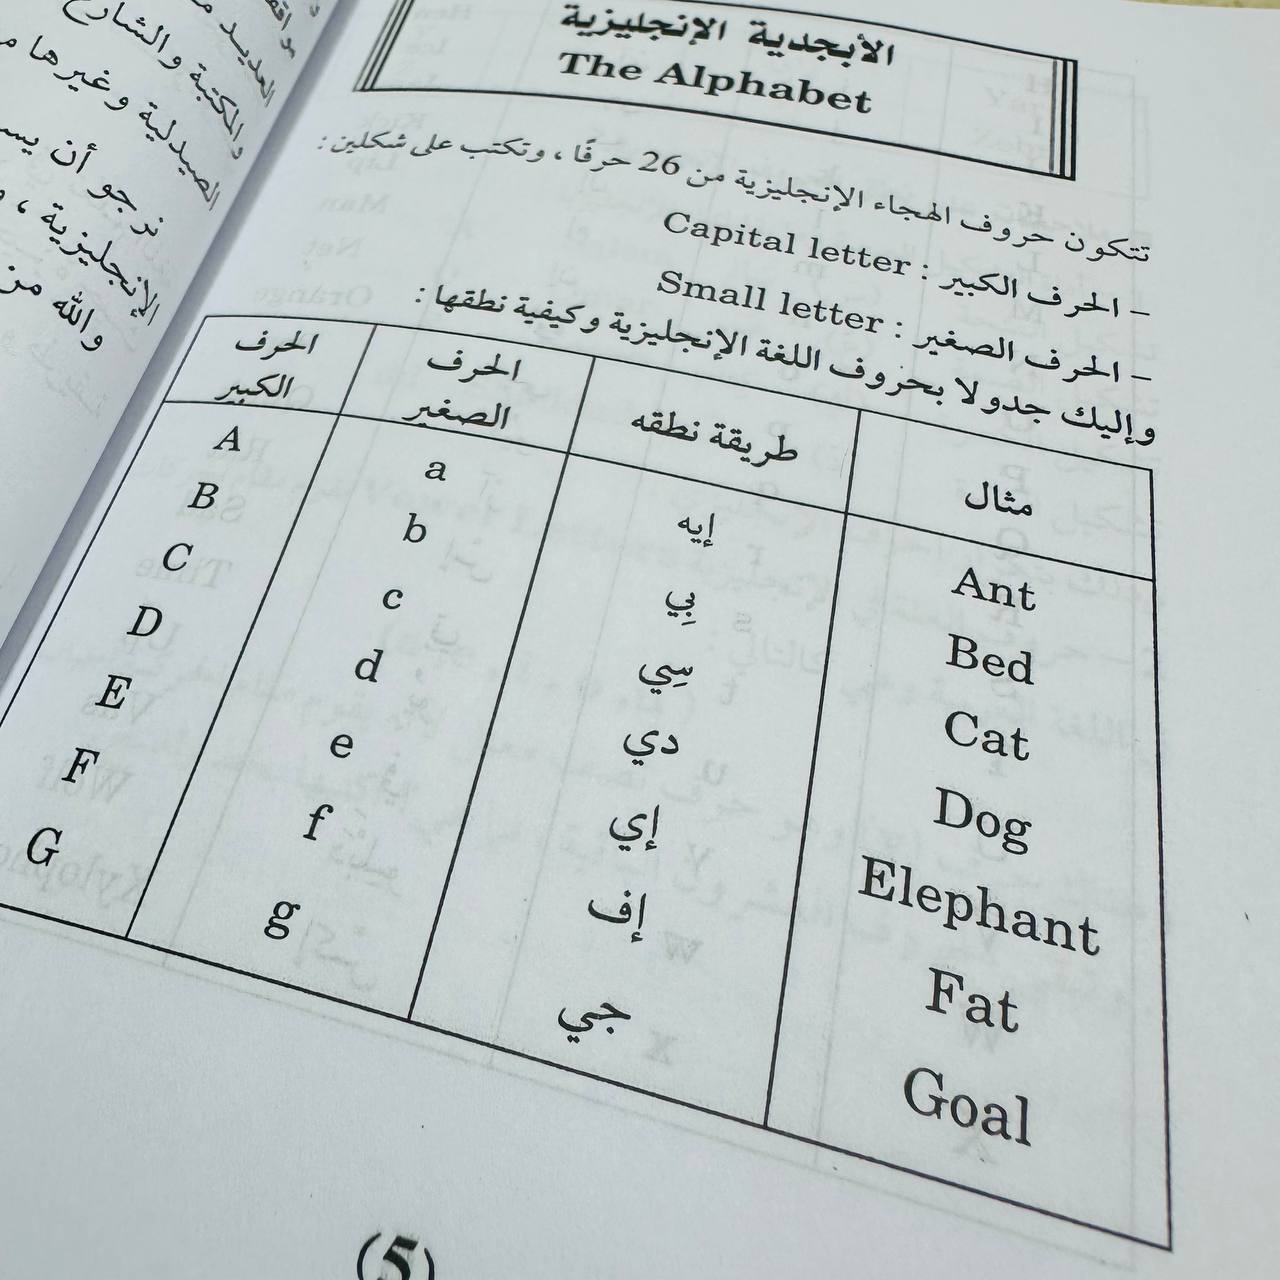 الأبجدية الإنجليزية
The Alphabet
تتكون حروف الهجاء الإنجليزية من 26 حرفًا ، وتكتب على شكلين :
– الحرف الكبير : Capital letter
– الحرف الصغير : Small letter
وإليك جدولا بحروف اللغة الإنجليزية وكيفية نطقها :
الحرف الكبير الحرف الصغير طريقة نطقه مثال
A a إيه Ant
B b بِي Bed
C c سِي Cat
D d دي Dog
E e إي Elephant
F f إف Fat
G g جي Goal
(5)
العديد
والمكتبة والشارع
الصيدلية وغيرها
نرجو أن
الإنجليزية ،
والله من